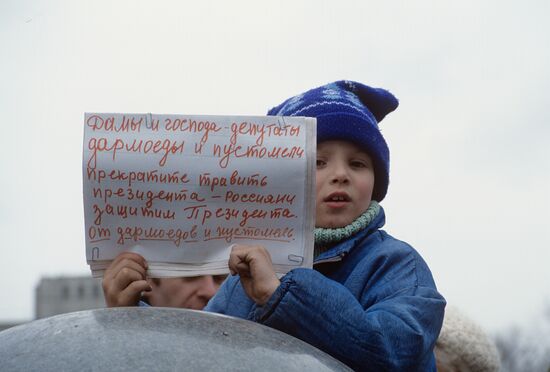 Дамы и господа - депутаты
дармоеды и пустомели
прекратите травить
президента - Россияни
защитим Президента.
от дармоедов и пустомель